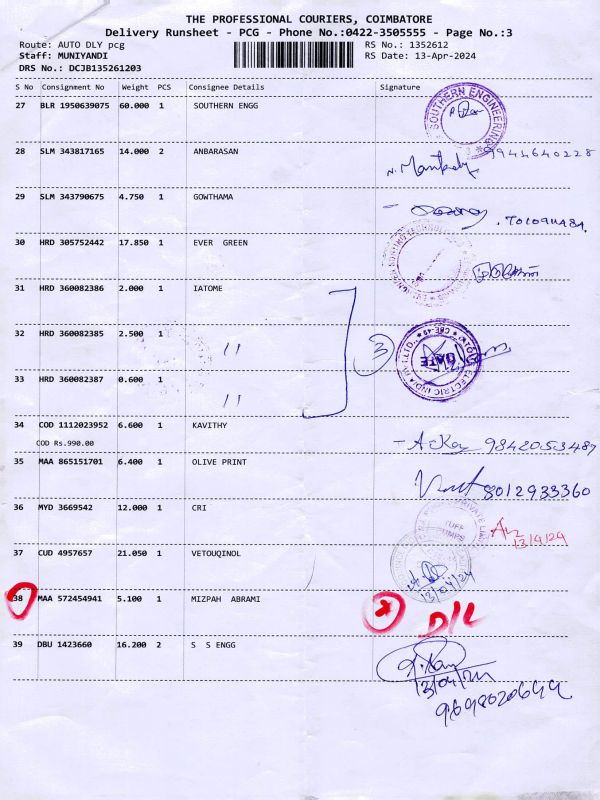 THE PROFESSIONAL COURIERS, COIMBATORE
Delivery Runsheet - PCG - Phone No.:0422-3505555 - Page No.:3
Route: AUTO DLY pcg RS No.: 1352612
Staff: MUNIYANDI RS Date: 13-Apr-2024
DRS No.: DCJB135261203
S No Consignment No Weight PCS Consignee Details Signature
27 BLR 1950639075 60.000 1 SOUTHERN ENGG
SOUTHERN ENGINEERING
28 SLM 343817165 14.000 2 ANBARASAN
29 SLM 343790675 4.750 1 GOWTHAMA
30 HRD 305752442 17.850 1 EVER GREEN
31 HRD 360082386 2.000 1 IATOME
32 HRD 360082385 2.500 1 〃
3
33 HRD 360082387 0.600 1 〃
34 COD 1112023952 6.600 1 KAVITHY
COD Rs.990.00
9842053487
35 MAA 865151701 6.400 1 OLIVE PRINT
8012933360
36 MYD 3669542 12.000 1 CRI
13/4/24
37 CUD 4957657 21.050 1 VETOUQINOL
13/04/24
38 MAA 572454941 5.100 1 MIZPAH ABRAMI
D/L
39 DBU 1423660 16.200 2 S S ENGG
13/04/24